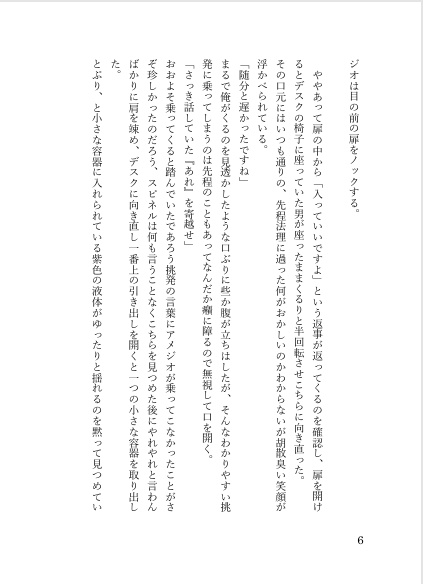 ジオは目の前の扉をノックする。
ややあって扉の中から「入っていいですよ」という返事が返ってくるのを確認し、扉を開け
るとデスクの椅子に座っていた男が座ったままくるりと半回転させこちらに向き直った。
その口元にはいつも通りの、先程法理に過った何がおかしいのかわからないが胡散臭い笑顔が
浮かべられている。
「随分と遅かったですね」
まるで俺がくるのを見透かしたような口ぶりに些か腹が立ちはしたが、そんなわかりやすい挑
発に乗ってしまうのは先程のこともあってなんだか癪に障るので無視して口を開く。
「さっき話していた『あれ』を寄越せ」
おおよそ乗ってくると踏んでいたであろう挑発の言葉にアメジオが乗ってこなかったことがさ
ぞ珍しかったのだろう、スピネルは何も言うことなくこちらを見つめた後にやれやれと言わん
ばかりに肩を竦め、デスクに向き直し一番上の引き出しを開くと一つの小さな容器を取り出し
た。
とぷり、と小さな容器に入れられている紫色の液体がゆったりと揺れるのを黙って見つめてい
6